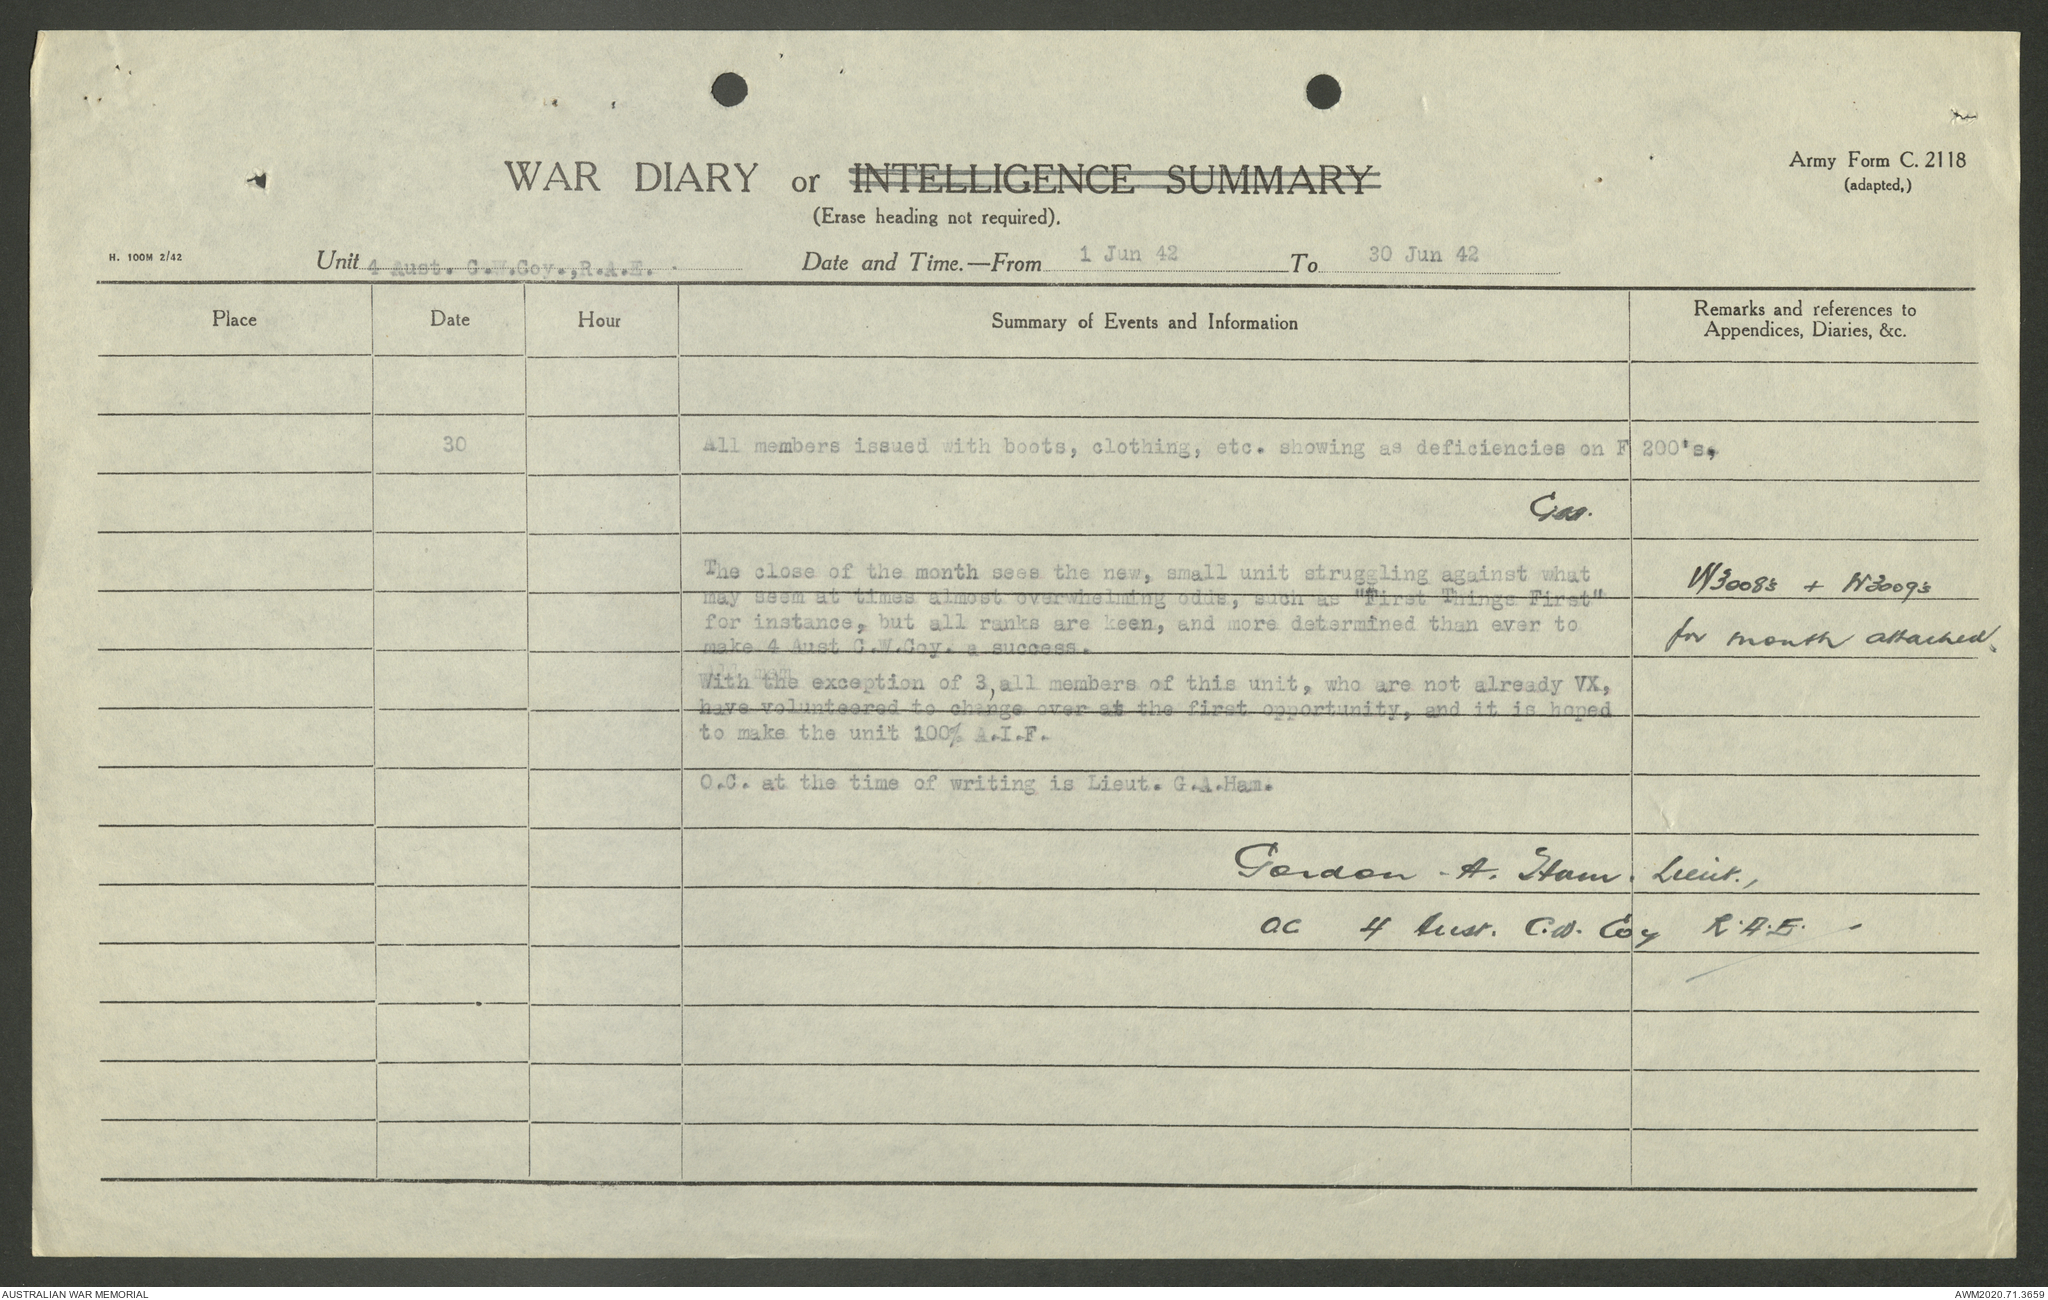 WAR DIARY or INTELLIGENCE SUMMARY
(Erase heading not required).
Army Form C. 2118
(adapted,)
H. 100M 2/42
Unit 4 Aust. C.W.Coy.,R.A.E.
Date and Time.—From 1 Jun 42 To 30 Jun 42
Place Date Hour Summary of Events and Information Remarks and references to
Appendices, Diaries, &c.
30 All members issued with boots, clothing, etc. showing as deficiencies on F 200's,
The close of the month sees the new, small unit struggling against what
may seem at times almost overwhelming odds, such as "First Things First"
for instance, but all ranks are keen, and more determined than ever to
make 4 Aust C.W.Coy. a success.
W3008's + W3009's
for month attached.
With the exception of 3, all members of this unit, who are not already VX,
have volunteered to change over at the first opportunity, and it is hoped
to make the unit 100% A.I.F.
O.C. at the time of writing is Lieut. G.A.Ham.
Gordon A. Ham. Lieut.,
OC 4 Aust. C.W. Coy R.A.E.
AUSTRALIAN WAR MEMORIAL
AWM2020.71.3659